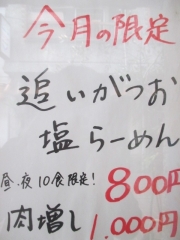 今月の限定
追いがつお
塩らーめん
昼、夜10食限定! 800円
肉増し 1,000円